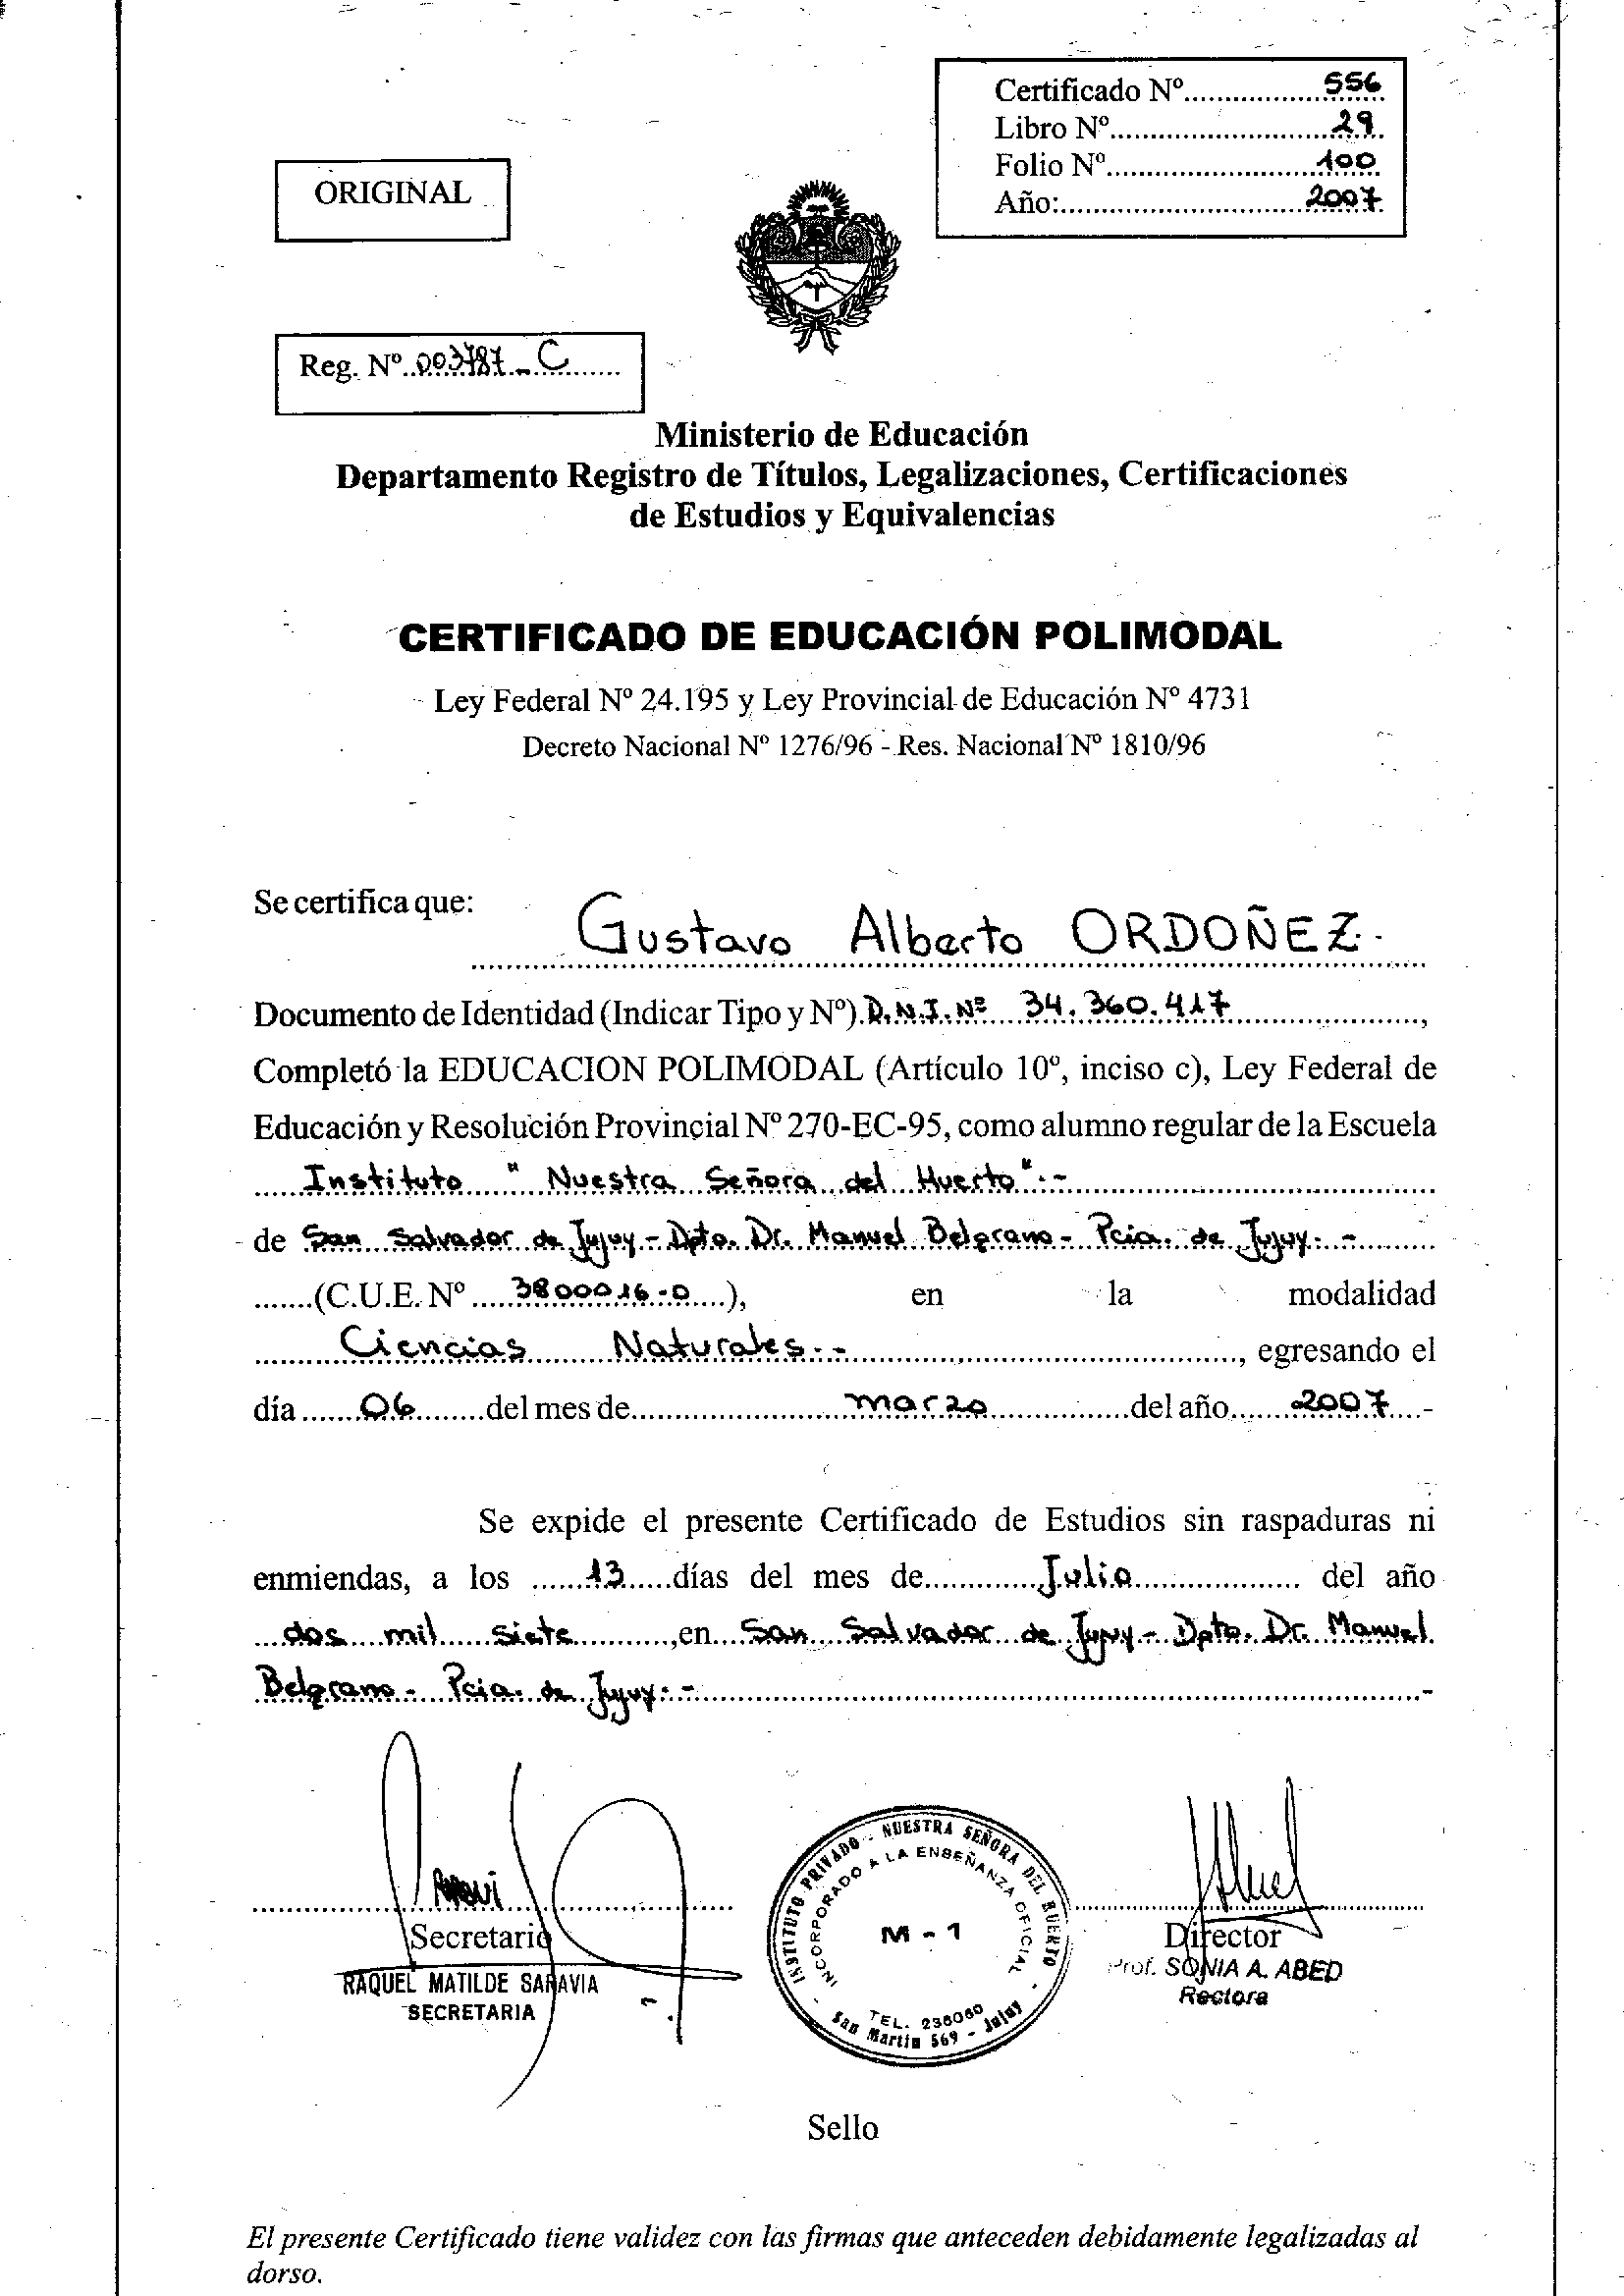 Certificado Nº 556
Libro Nº 29
Folio Nº 100
Año: 2007
ORIGINAL
Reg. Nº 003787 - C
Ministerio de Educación
Departamento Registro de Títulos, Legalizaciones, Certificaciones
de Estudios y Equivalencias
CERTIFICADO DE EDUCACIÓN POLIMODAL
Ley Federal Nº 24.195 y Ley Provincial de Educación Nº 4731
Decreto Nacional Nº 1276/96 - Res. Nacional Nº 1810/96
Se certifica que: Gustavo Alberto ORDOÑEZ.-
Documento de Identidad (Indicar Tipo y Nº). D.N.I. Nº 34.360.417,
Completó la EDUCACION POLIMODAL (Artículo 10º, inciso c), Ley Federal de
Educación y Resolución Provincial Nº 270-EC-95, como alumno regular de la Escuela
Instituto "Nuestra Señora del Huerto".-
de San Salvador de Jujuy - Dpto. Dr. Manuel Belgrano - Pcia. de Jujuy.-
(C.U.E. Nº 3800016-0), en la modalidad
Ciencias Naturales.-, egresando el
día 06 del mes de marzo del año 2007.-
Se expide el presente Certificado de Estudios sin raspaduras ni
enmiendas, a los 13 días del mes de Julio del año
dos mil siete, en San Salvador de Jujuy - Dpto. Dr. Manuel
Belgrano - Pcia. de Jujuy.-
Secretario
RAQUEL MATILDE SARAVIA
SECRETARIA
INSTITUTO PRIVADO - NUESTRA SEÑORA DEL HUERTO -
INCORPORADO A LA ENSEÑANZA OFICIAL
M - 1
TEL. 236060
San Martin 569 - Jujuy
Director
Prof. SONIA A. ABED
Rectora
Sello
El presente Certificado tiene validez con las firmas que anteceden debidamente legalizadas al
dorso.